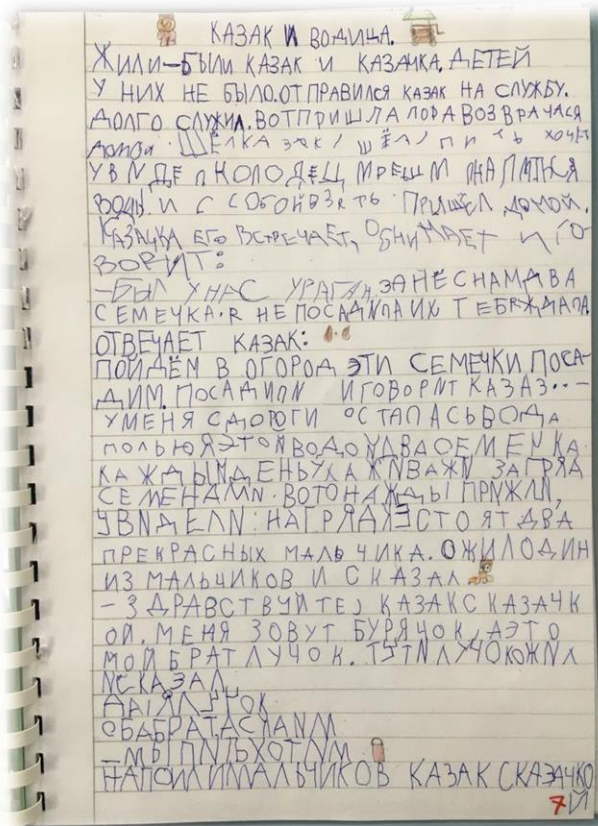 КАЗАК И ВОДИЦА.
ЖИЛИ-БЫЛИ КАЗАК И КАЗАЧКА. ДЕТЕЙ
У НИХ НЕ БЫЛО. ОТПРАВИЛСЯ КАЗАК НА СЛУЖБУ.
ДОЛГО СЛУЖИЛ. ВОТ ПРИШЛА ПОРА ВОЗВРАЧАСЯ
ДОМОЙ. ШЁЛ КАЗАК, ШЁЛ, ПИТЬ ХОЧЕТ
УВИДЕЛ КОЛОДЕЦ
ВОДЫ И С СОБОЙ ВЗЯТЬ. ПРИШЁЛ ДОМОЙ.
КАЗАЧКА ЕГО ВСТРЕЧАЕТ, ОБНИМАЕТ И ГО-
ВОРИТ:
-БЫЛ У НАС УРАГАН, ЗАНЁС НАМ ДВА
СЕМЕЧКА. Я НЕ ПОСАДИЛА ИХ ТЕБЯ ЖДАЛА
ОТВЕЧАЕТ КАЗАК:
ПОЙДЁМ В ОГОРОД ЭТИ СЕМЕЧКИ ПОСА-
ДИМ. ПОСАДИЛИ И ГОВОРИТ КАЗАЗ..-
У МЕНЯ С ДОРОГИ ОСТАЛАСЬ ВОДА
ПОЛЬЮ Я ЭТОЙ ВОДОЙ ДВА СЕМЕЧКА
КАЖДЫЙ ДЕНЬ УХАЖИВАЖИ ЗА ГРЯД
СЕМЕНАМИ. ВОТ ОНАЖДЫ ПРИЖЛИ,
УВИДЕЛИ: НА ГРЯДЯЭ СТОЯТ ДВА
ПРЕКРАСНЫХ МАЛЬЧИКА. ОЖИЛ ОДИН
ИЗ МАЛЬЧИКОВ И СКАЗАЛ
- ЗДРАВСТВУЙТЕ, КАЗАК С КАЗАЧК
ОЙ. МЕНЯ ЗОВУТ БУРЯЧОК, А ЭТО
МОЙ БРАТ ЛУЧОК. ТУТ И ЛУЧОК ОЖИЛ
И СКАЗАЛ
ДА! Я ЛУЧОК
ОБА БРАТА СКАЗАЛИ
-МЫ ПИТЬ ХОТИМ
НАПОИЛИ МАЛЬЧИКОВ КАЗАК С КАЗАЧКО
Й
7